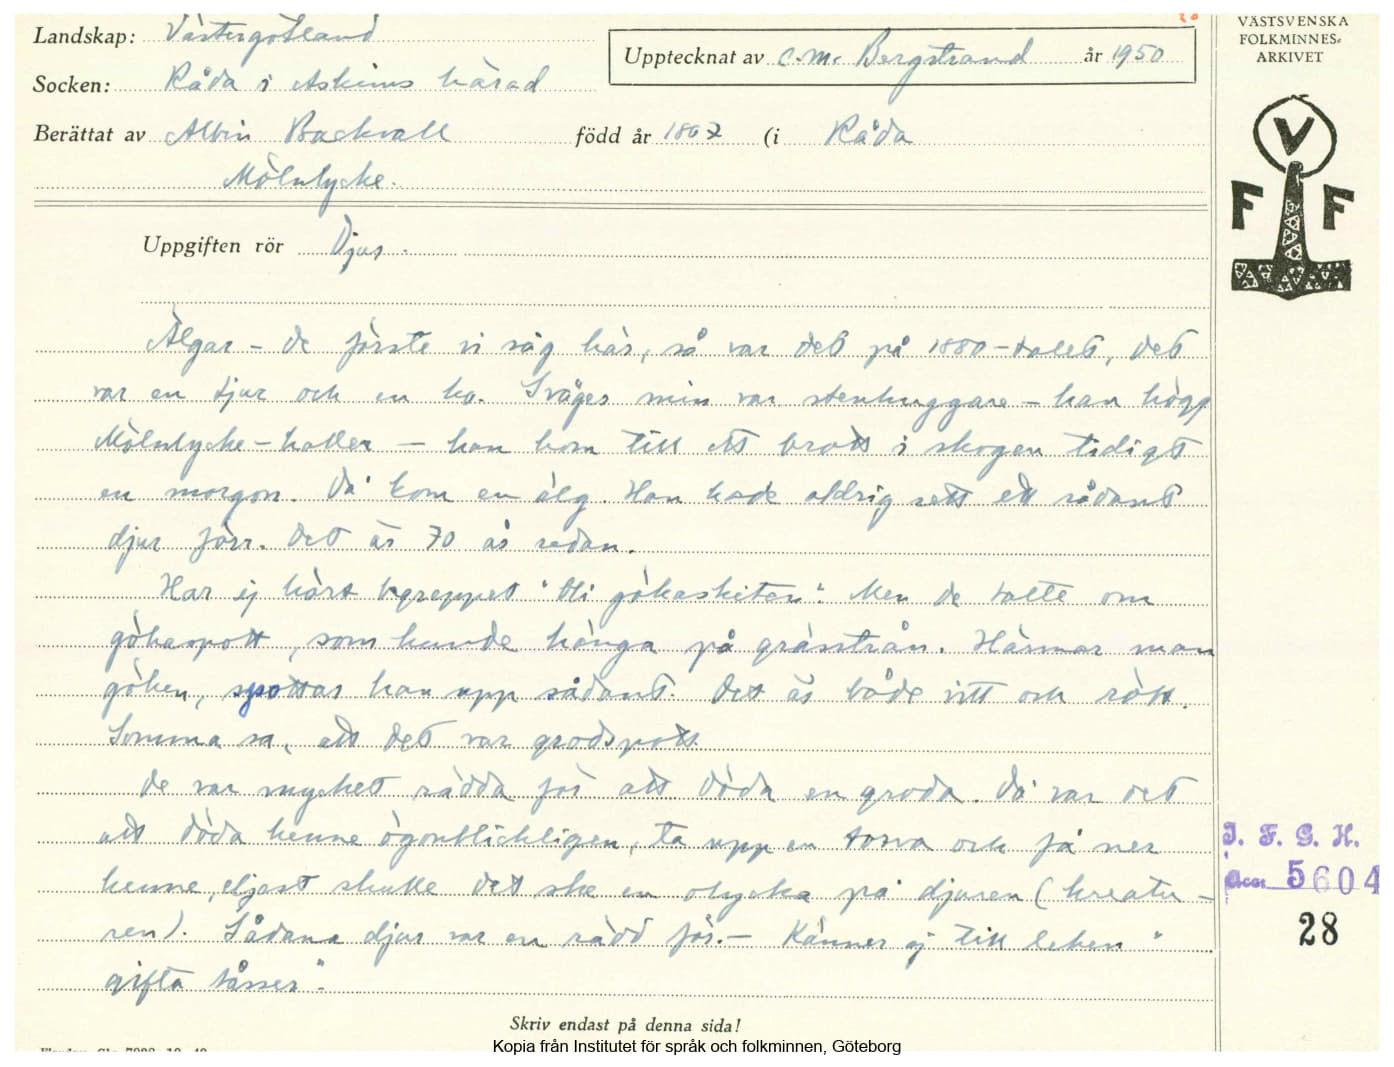 Landskap: Västergötland
Upptecknat av C.M. Bergstrand år 1950
Socken: Råda i Askims härad
Berättat av Albin Backvall född år 1867 (i Råda
Mölnlycke.
Uppgiften rör Djur.
VÄSTSVENSKA
FOLKMINNES-
ARKIVET
V
F F
Älgar – de förste vi såg här, så var det på 1880-talet, det
var en tjur och en ko. Svåger min var stenhuggare – han högg
Mölnlycke-hallen – han kom till ett brott i skogen tidigt
en morgon. Då kom en älg. Han hade aldrig sett ett sådant
djur förr. Det är 70 år sedan.
Har ej hört begreppet "bli gökaskiten". Men de talte om
gökaspott, som kunde hänga på grässtrån. Härmar man
göken, spottar han upp sådant. Det är både vitt och rött.
Somma sa, att det var grodspott.
De var mycket rädda för att döda en groda. Då var det
att döda henne ögonblickligen, ta upp en torva och få ner
henne, eljest skulle det ske en olycka på djuren (kreatu-
ren). Sådana djur var en rädd för. – Känner ej till leken "
gifta tåsser".
I. F. G. H.
Acc. 5604
28
Skriv endast på denna sida!
Kopia från Institutet för språk och folkminnen, Göteborg